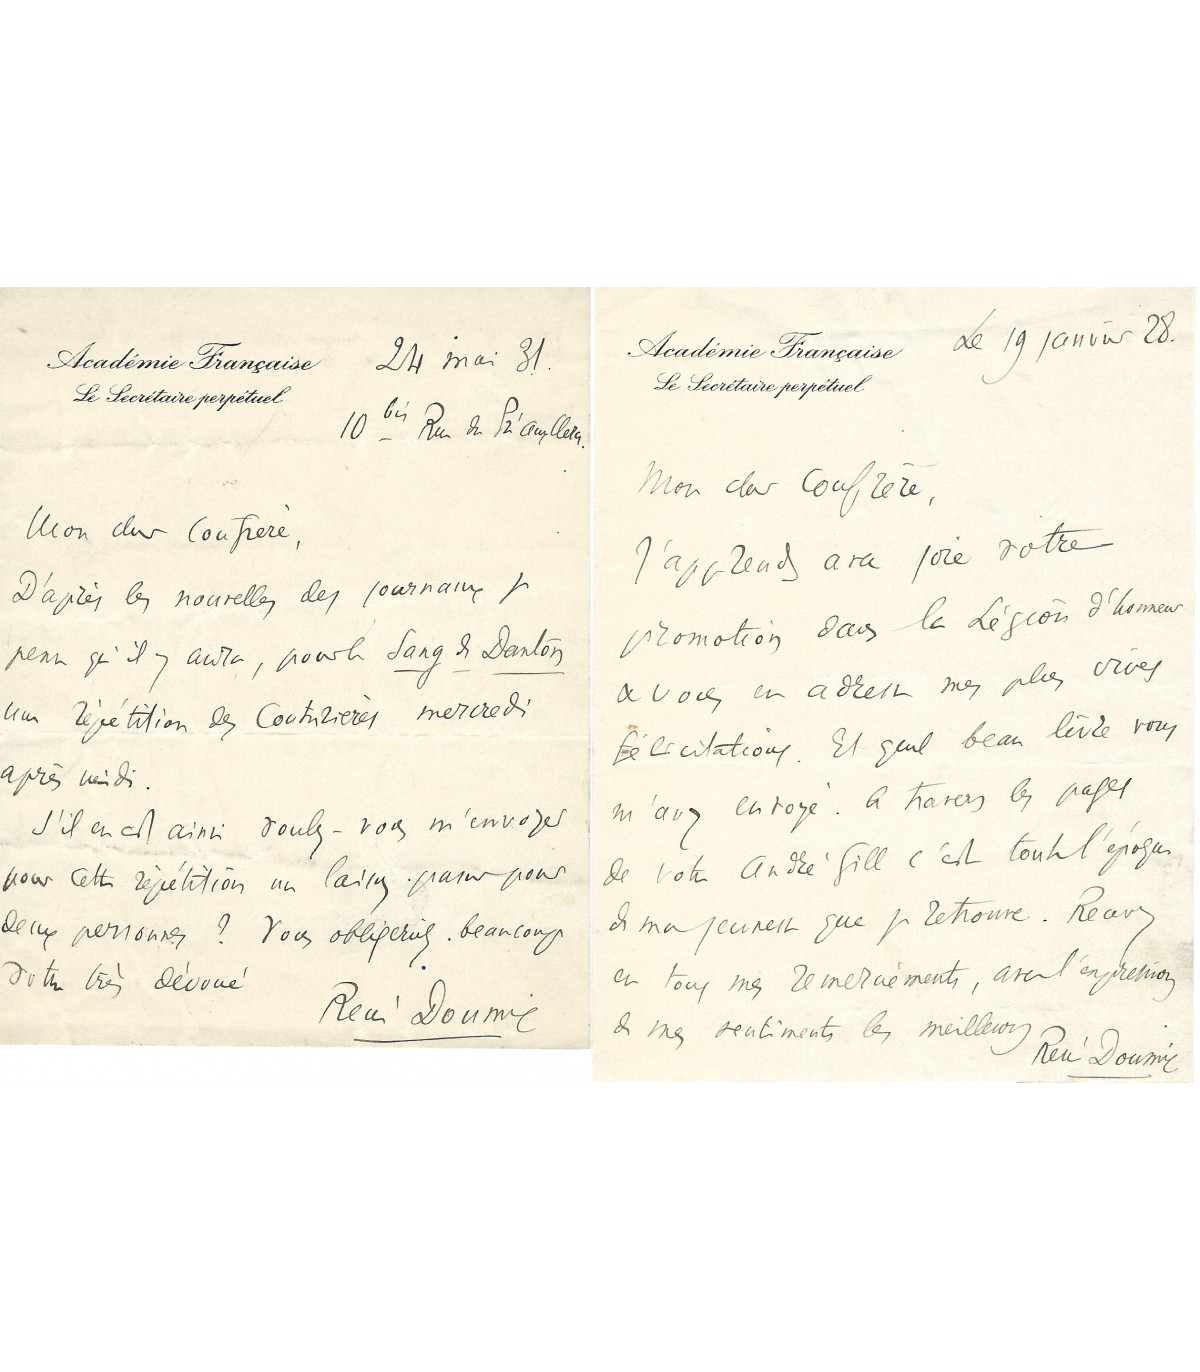 Académie Française
Le Secrétaire perpétuel
24 mai 31.
10 bis Rue du Pré aux Clercs.
Mon cher Confrère,
D'après les nouvelles des journaux je
pense qu'il y aura, pour le Sang de Danton
une répétition des Couturières mercredi
après midi.
S'il en est ainsi voulez-vous m'envoyer
pour cette répétition un laissez-passer pour
deux personnes ? Vous obligeriez beaucoup
votre très dévoué
René Doumic
Académie Française
Le Secrétaire perpétuel
Le 19 janvier 28.
Mon cher Confrère,
J'apprends avec joie votre
promotion dans la Légion d'honneur
& vous en adresse mes plus vives
félicitations. Et quel beau livre vous
m'avez envoyé. A travers les pages
de votre André Gill c'est toute l'époque
de ma jeunesse que je retrouve. Recevez
en tous mes remerciements, avec l'expression
de mes sentiments les meilleurs
René Doumic